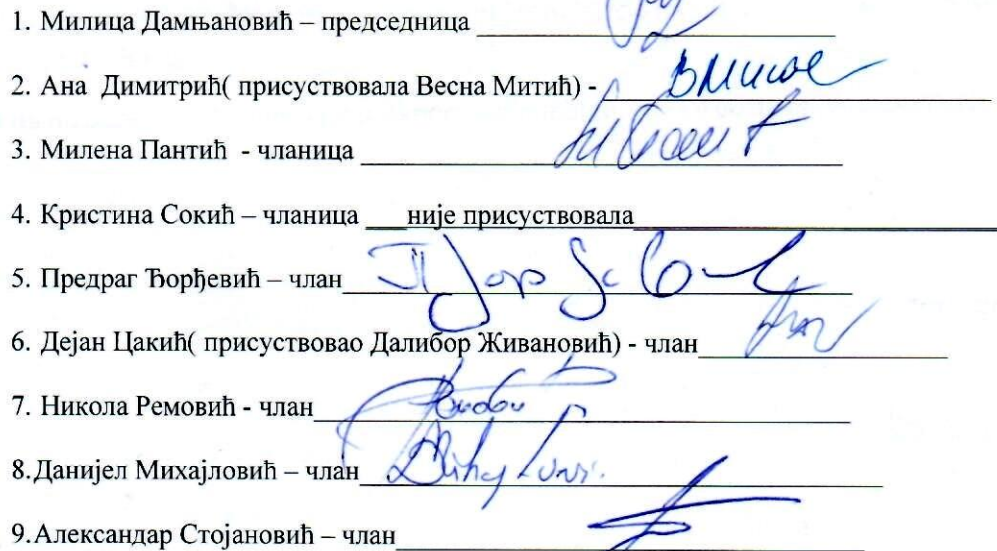 1. Милица Дамњановић – председница
2. Ана Димитрић( присуствовала Весна Митић) -
3. Милена Пантић - чланица
4. Кристина Сокић – чланица није присуствовала
5. Предраг Ђорђевић – члан
6. Дејан Цакић( присуствовао Далибор Живановић) - члан
7. Никола Ремовић - члан
8.Данијел Михајловић – члан
9.Александар Стојановић – члан